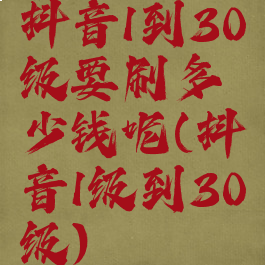 抖音1到30
级要刷多
少钱呢(抖
音1级到30
级)